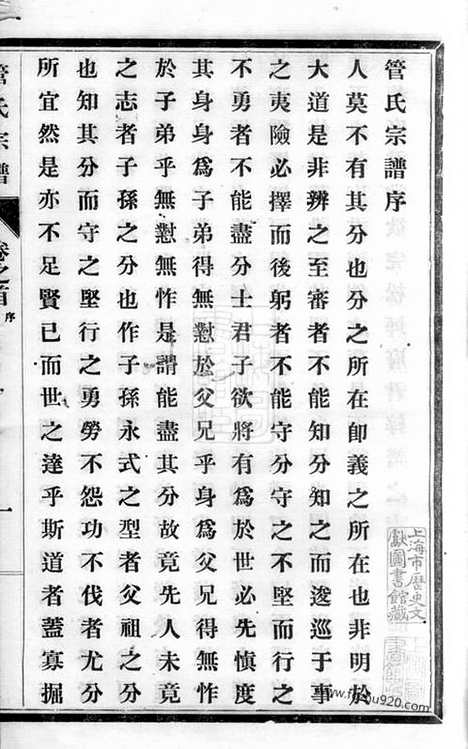 管氏宗譜序
人莫不有其分也分之所在卽義之所在也非明於
大道是非辨之至審者不能知分知之而逡巡于事
之夷險必擇而後躬者不能守分守之不堅而行之
不勇者不能盡分士君子欲將有爲於世必先愼度
其身身爲子弟得無懟於父兄乎身爲父兄得無怍
於子弟乎無懟無怍是謂能盡其分故竟先人未竟
之志者子孫之分也作子孫永式之型者父祖之分
也知其分而守之堅行之勇勞不怨功不伐者尤分
所宜然是亦不足賢已而世之達乎斯道者蓋寡掘
管氏宗譜
卷之首
序
一
上海市歷史文
獻圖書館藏
www.fozhu920.com